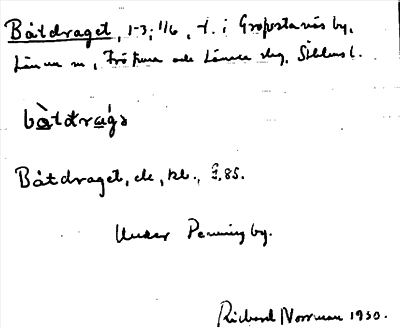 Båtdraget, 1-3; 1/6, t. i Gropstanäs by,
Länna sn, Frötuna och Länna skg, Sthlms l.
bå̀tdrágə
Båtdraget, de, kl., I, 85.
Under Penningby.
Richard Norrman 1930.